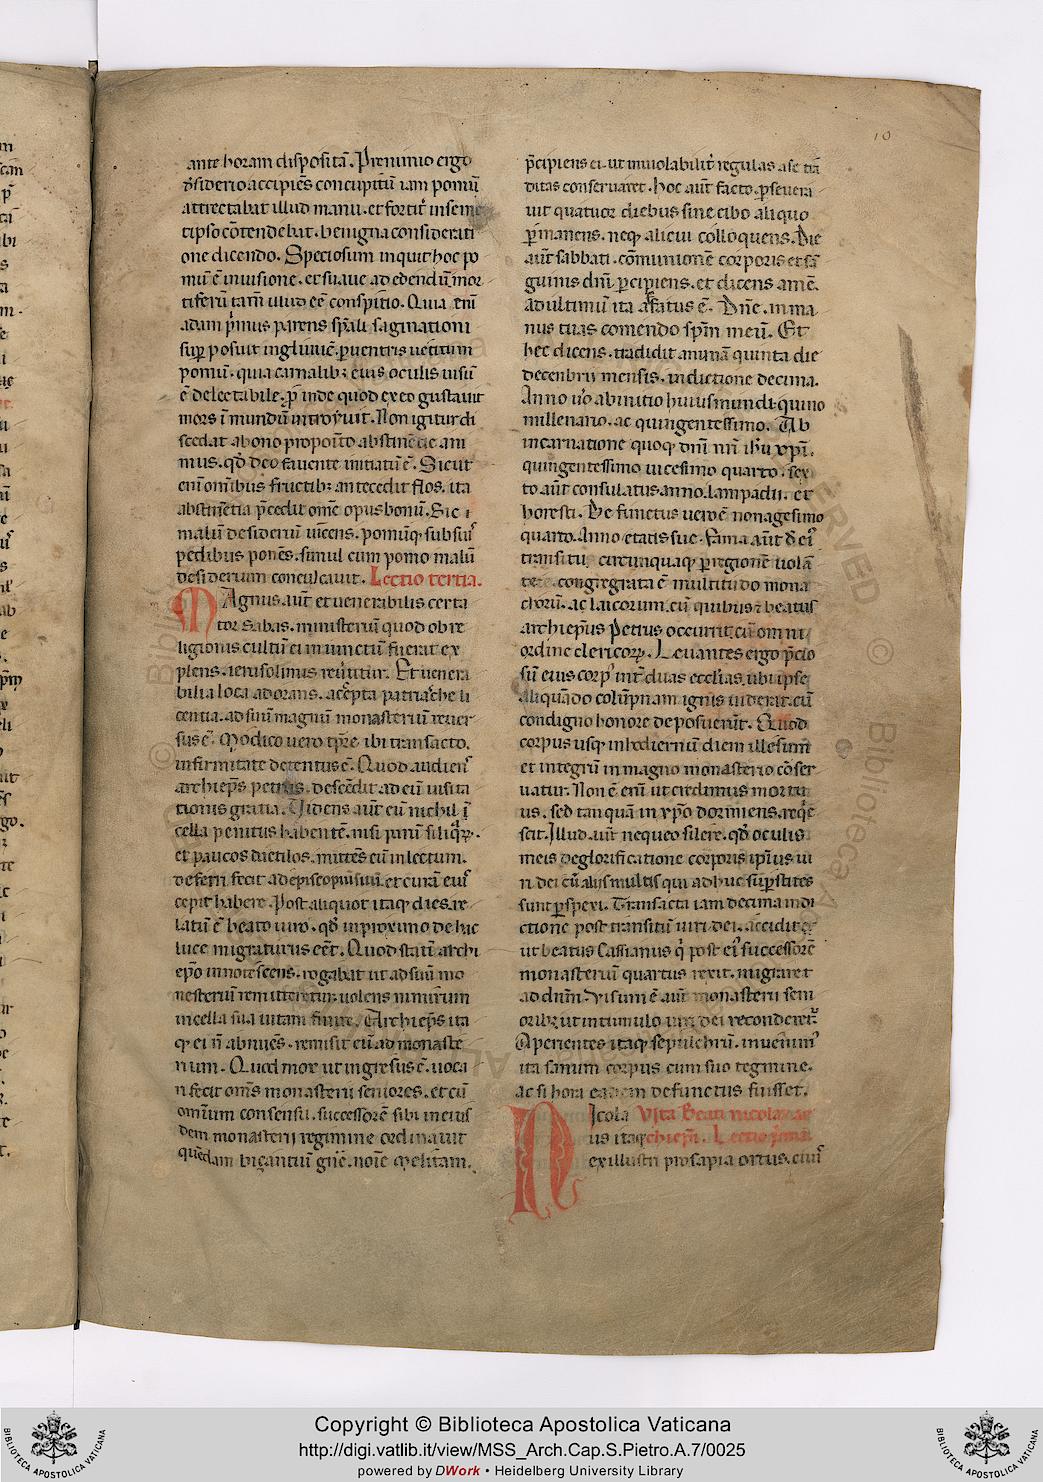 10
ante horam dispositā. Prenimio ergo
dͥsiderio accipiēs concupitū iam pomū
attrectabat illud manu. et fortit͛ in seme
tipso cōtendebat. benigna considerati
one dicendo. Speciosum inquit hoc po
mū ē in uisione. et suaue ad edendū. mor
tiferū tam̄ illud eē conspitio. Quia eni͞
adam pͥmus parens sp̄ali saginationi
suꝑposuit ingluuiē. ꝑ uentris uetitum
pomū. quia carnalibꝫ eius oculis uisū
ē delectabile. ꝓinde quod ex eo gustauit
mors ī mundū introyuit. Non igitur di
scedat a bono proposito abstinētie ani
mus. qđ deo fauente initiatū ē. Sicut
eni͞ omībus fructibꝫ antecedit flos. ita
abstinētia p̄cedit om̄e opus bonū. Sic
malū desideriū uīcens. pomūqꝫ sub suis
pedibus ponēs. simul cum pomo malū
desiderium conculcauit. Lectio tertia.
MAgnus aut̄ et uenerabilis certa
tor sabas. ministeriū quod ob re
ligionis cultū ei iniunctū fuerat ex
plens. ierusolimis reuertitur. Et uenera
bilia loca adorans. accepta patriarche li
centia. ad suū magnū monasteriū reuer
sus ē. Modico uero tp̄re ibi transacto.
infirmitate detentus ē. Quod audiens
archiep̄s petrus. descēdit ad eū uisita
tionis gratia. Uidens aut̄ eū nichil ī
cella penitus habentē. nisi parū siliqͣꝝ.
et paucos dactilos. mittēs eū in lectum.
deferri fecit ad episcopiū suū. et curā eius
cepit habere. Post aliquot itaqꝫ dies. re
latū ē beato uiro. qđ in proximo de hac
luce migraturus eēt. Quod statī archi
ep̄o innotescens. rogabat ut ad suū mo
nasteriū remitteretur. uolens nimirum
in cella sua uitam finire. Archiep̄s ita
qꝫ ei n̄ abnuēs. remisit eū ad monaste
rium. Quod mox ut ingresus ē. uoca
ri fecit om̄s monasterij seniores. et cū
omnium consensu. successorē sibi in eius
dem monasterij regimine ordinauit
quēdam biçantiū gn̄e. noīe melitam.
p̄cipiens ei. ut inuiolabilit͛ regulas a se tra
ditas conseruaret. hoc aut̄ facto. ꝑseuera
uit quatuor diebus sine cibo aliquo
ꝑmanens. neqꝫ alicui colloquens. Die
aut̄ sabbati. cōmunionē corporis et sā
guinis dn̄i ꝑcipiens. et dicens amē.
ad ultimū ita affatus ē. Dn̄e. in ma
nus tuas comendo sp̄m meū. Et
hec dicens. tradidit animā quinta die
decenbrij mensis. indictione decima.
Anno uͦo ab initio huius mundi. quino
millenario. ac quingentessimo. Ab
incarnatione quoqꝫ dn̄i nr̄i ih̄u xp̄i.
quingentessimo uicesimo quarto. sex
to aut̄ consulatus anno. lampadij. et
horesti. Defunctus uero ē nonagesimo
quarto. Anno etatis sue. Fama aut̄ de eiꝰ
transitu. circunquaqꝫ ꝑ regionē uolā
te. congregata ē multitudo mona
chorū. ac laicorum. cū quibus ⁊ beatus
archiep̄us Petrus occurrit. cū omni
ordine clericoꝝ. Leuantes ergo p̄cio
sū eius corpꝰ int͛ duas ecclīas. ubi ipse
aliquādo colūpnam ignis uiderat. cū
condigno honore deposuerūt. Quod
corpus usqꝫ in hodiernū diem illesum̄
et integrū in magno monasterio cōser
uatur. Non ē eni͞ ut credimus mortu
us. sed tanquā in xp̄o dormiens. req͛e
scit. Illud aut̄ nequeo silere. qđ oculis
meis de glorificatione corporis ipsius ui
ri dei cū alijs multis qui adhuc suꝑstites
sunt ꝑspexi. Transacta iam decima indi
ctione post transitū uiri dei. accidit
ut beatus Cassianus qͥ post eiꝰ successorē
monasteriū quartus rexit. migraret
ad dn̄m. Visum ē aut̄ monasterij seni
oribꝫ ut in tumulo uiri dei reconderet͛.
Aperientes itaqꝫ sepulchrū. inueniunt
ita sanum corpus cum suo tegmine.
ac si hora eadem defunctus fuisset.
NIcola Vita Beati nicolai ar
us itaqꝫ chiepi͞. Lectio pͥma.
ex illustri prosapia ortus. ciuiꝰ
BIBLIOTECA APOSTOLICA VATICANA
Copyright © Biblioteca Apostolica Vaticana
http://digi.vatlib.it/view/MSS_Arch.Cap.S.Pietro.A.7/0025
powered by DWork • Heidelberg University Library
BIBLIOTECA APOSTOLICA VATICANA